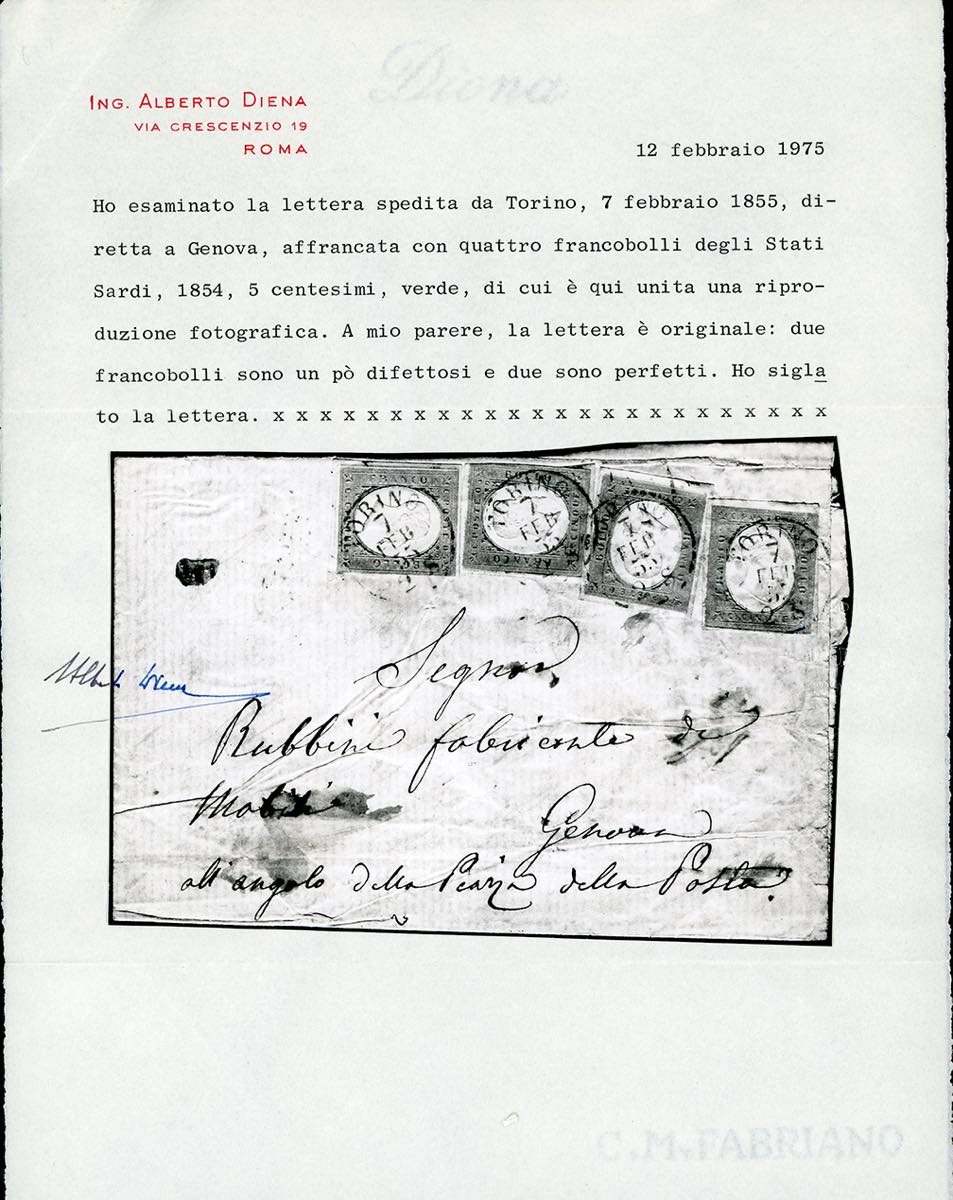 Diena
ING. ALBERTO DIENA
VIA CRESCENZIO 19
ROMA
12 febbraio 1975
Ho esaminato la lettera spedita da Torino, 7 febbraio 1855, di-
retta a Genova, affrancata con quattro francobolli degli Stati
Sardi, 1854, 5 centesimi, verde, di cui è qui unita una ripro-
duzione fotografica. A mio parere, la lettera è originale: due
francobolli sono un pò difettosi e due sono perfetti. Ho sigla
to la lettera. x x x x x x x x x x x x x x x x x x x x x x x x
TORINO 7 FEB
TORINO 7 FEB
7 FEB 55
TORINO 7 FEB
Segnor
Alberto Diena
Rubbini fabriconte di
Mobili
Genova
all angolo della Piazza della Posta.
C.M.FABRIANO